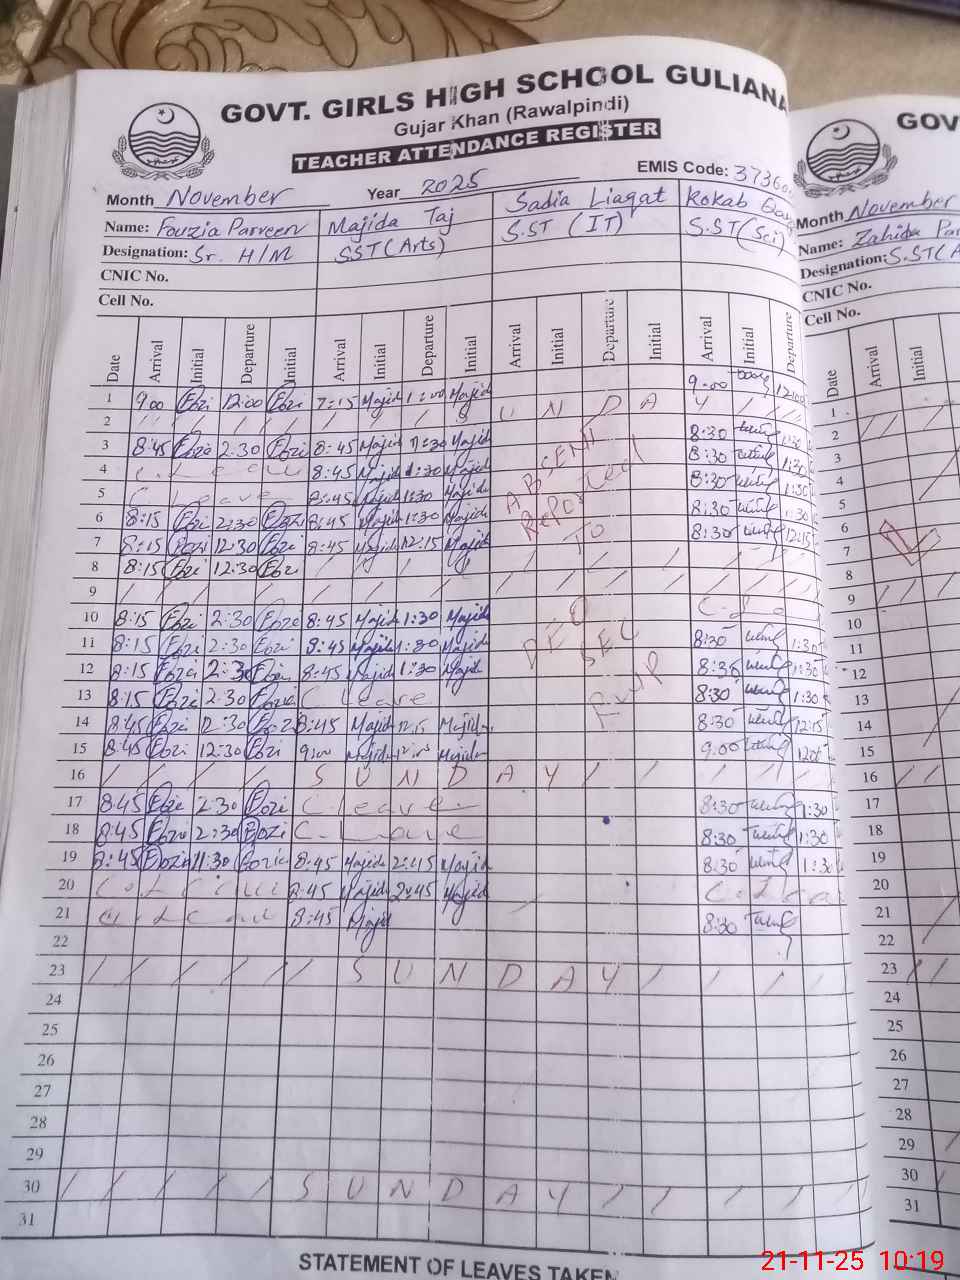 GOVT. GIRLS HIGH SCHOOL GULIANA
Gujar Khan (Rawalpindi)
TEACHER ATTENDANCE REGISTER
EMIS Code: 3736
Month November Year 2025
Name: Fouzia Parveen Majida Taj Sadia Liaqat Kokab
Designation: Sr. H/M SST (Arts) S.ST (IT) S.ST (Sci)
CNIC No.
Cell No.
Date Arrival Initial Departure Initial Arrival Initial Departure Initial Arrival Initial Departure Initial Arrival Initial Departure
1 9:00 Fozi 12:00 Fozi 7:15 Majida 1:00 Majida 9:00 12:00
2 / / / / / / / / U N D A Y / / /
3 8:45 Fozi 2:30 Fozi 8:45 Majida 1:30 Majida ABSENT 8:30 1:30
4 C. Leave 8:45 Majida 1:30 Majida 8:30 1:30
5 C Leave 8:45 Majida 1:30 Majida Reported 8:30 1:30
6 8:15 Fozi 2:30 Fozi 8:45 Majida 1:30 Majida 8:30 1:30
7 8:15 Fozi 12:30 Fozi 8:45 Majida 12:15 Majida TO 8:30 12:15
8 8:15 Fozi 12:30 Fozi / / / /
9 / / / / / / / / / / / / / / /
10 8:15 Fozi 2:30 Fozi 8:45 Majida 1:30 Majida DEO C.L
11 8:15 Fozi 2:30 Fozi 8:45 Majida 1:30 Majida SEC 8:30 1:30
12 8:15 Fozi 2:30 Fozi 8:45 Majida 1:30 Majida 8:30 1:30
13 8:15 Fozi 2:30 Fozi C Leave RWP 8:30 1:30
14 8:45 Fozi 12:30 Fozi 8:45 Majida 12:15 Majida 8:30 12:15
15 8:45 Fozi 12:30 Fozi 9:00 Majida Majida 9:00
16 / / / / S U N D A Y / / / / /
17 8:45 Fozi 2:30 Fozi C. Leave 8:30 1:30
18 8:45 Fozi 2:30 Fozi C. Leave 8:30 1:30
19 8:45 Fozi 11:30 Fozia 8:45 Majida 2:45 Majida 8:30 1:30
20 C. Leave 8:45 Majida 2:45 Majida C. Lea
21 C. Leave 8:45 Majid 8:30
22
23 / / / / / S U N D A Y / / / /
24
25
26
27
28
29
30 / / / / / S U N D A Y / / / / /
31
STATEMENT OF LEAVES TAKEN
GOV
Month November
Name: Zahida Par
Designation: S.ST (A
CNIC No.
Cell No.
Date Arrival Initial
1
2
3
4
5
6
7
8
9
10
11
12
13
14
15
16
17
18
19
20
21
22
23
24
25
26
27
28
29
30
31
21-11-25 10:19